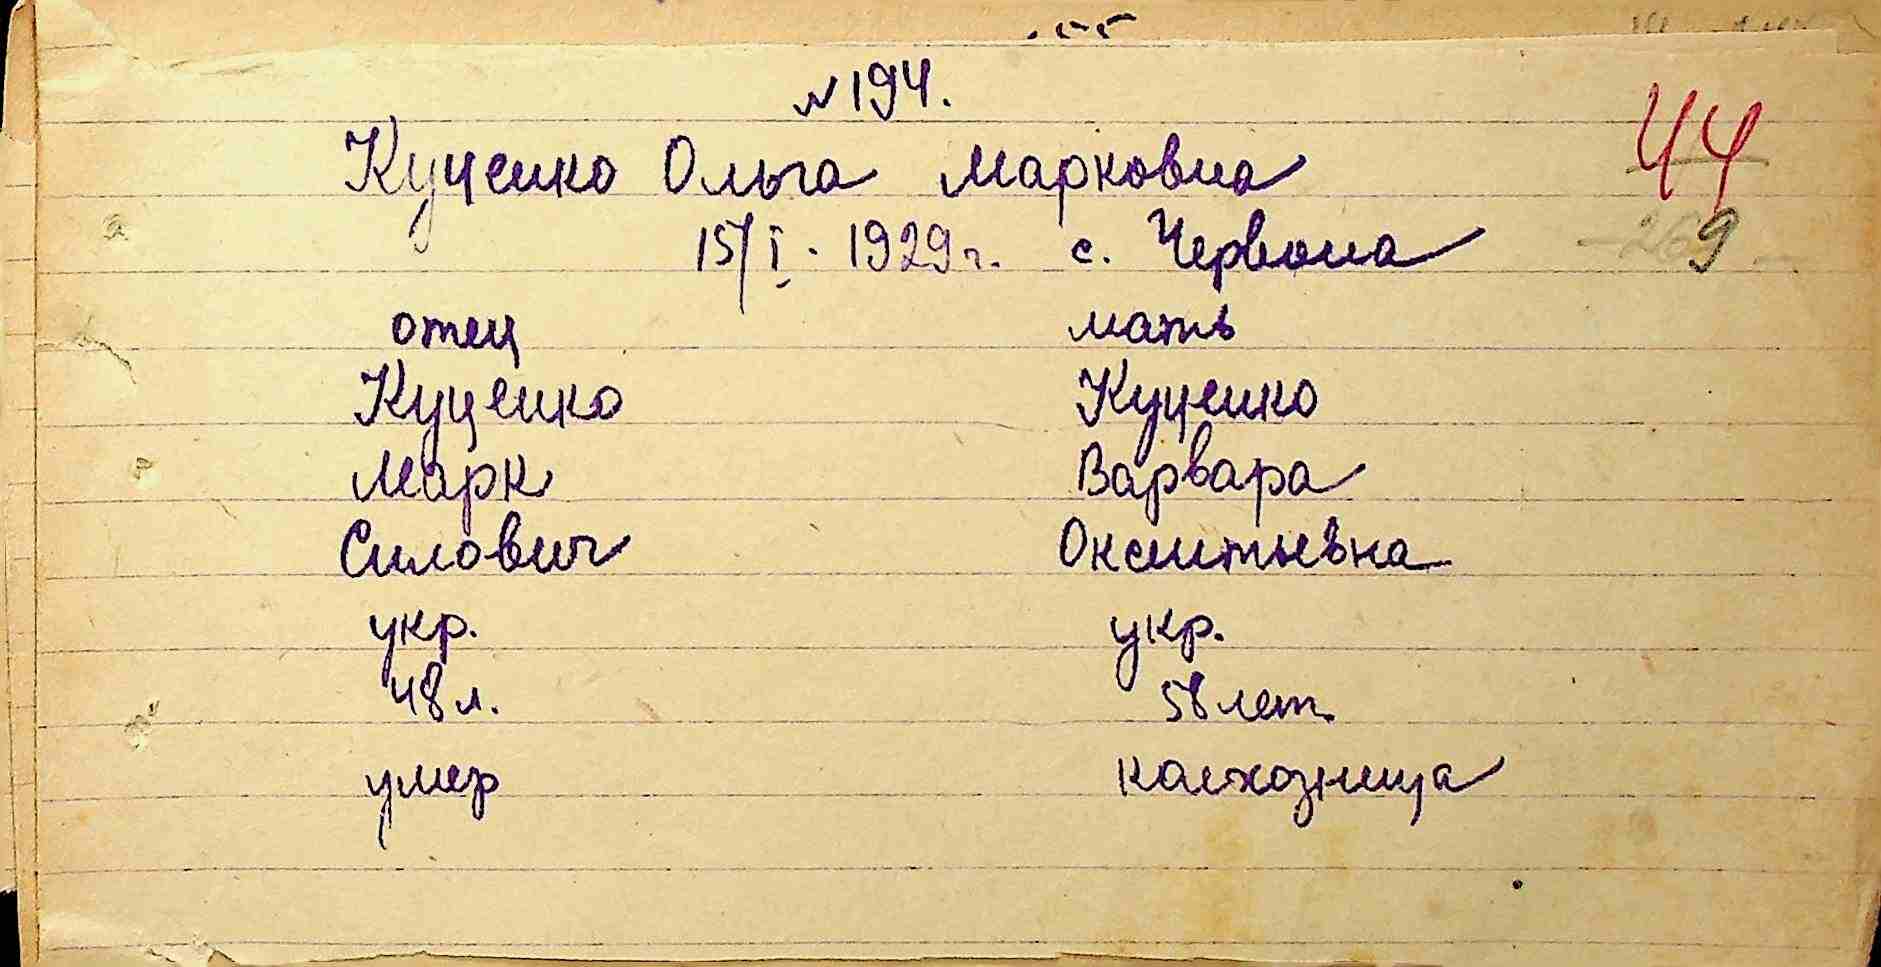 № 194.
44
Куценко Ольга Марковна
15/I. 1929 г. с. Червона
269
отец мать
Куценко Куценко
Марк Варвара
Силович Оксентьевна
укр. укр.
48 л. 58 лет.
умер колхозница